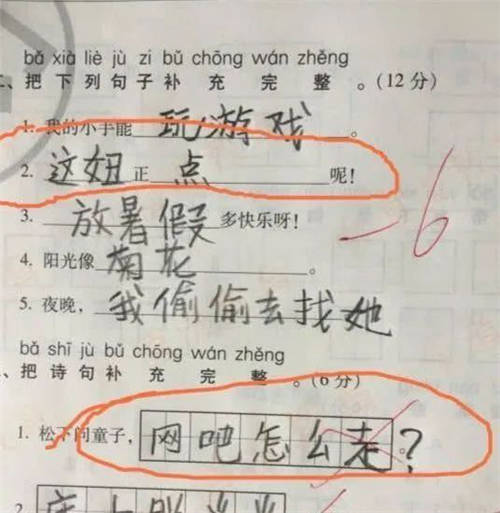 bǎ xià liè jù zi bǔ chōng wán zhěng
二、把下列句子补充完整。(12分)
1. 我的小手能 玩游戏 。
2. 这妞正 点 呢!
3. 放暑假 多快乐呀!
4. 阳光像 菊花 。
5. 夜晚，我偷偷去找她
-6
bǎ shī jù bǔ chōng wán zhěng
、把诗句补充完整。(6分)
1. 松下问童子，网吧怎么走?
2. 床